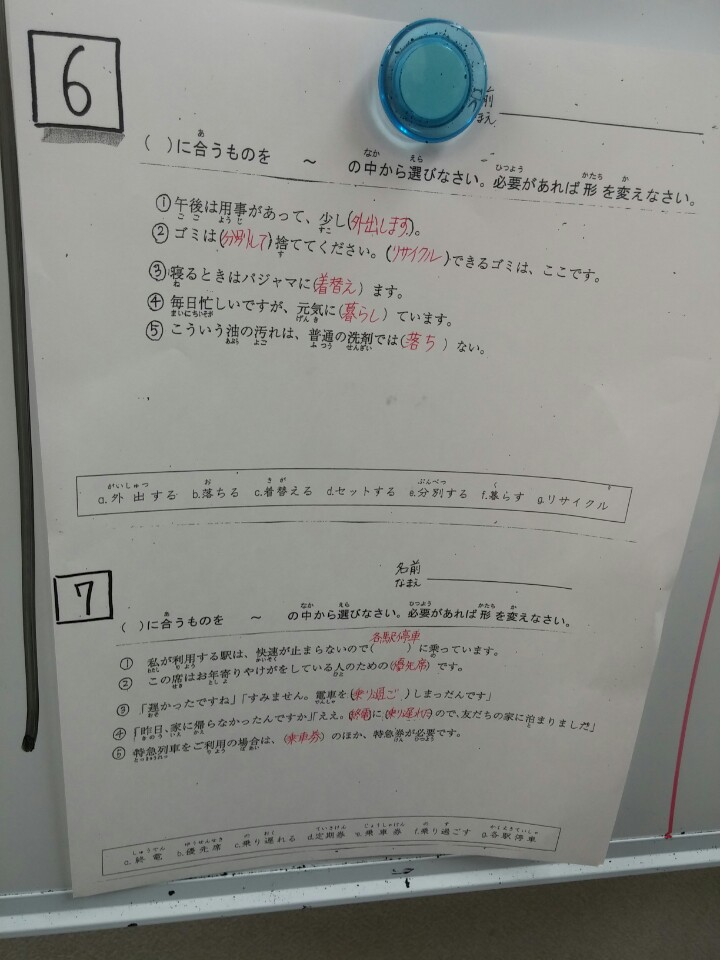 6
名前
なまえ
( )に合うものを ～ の中から選びなさい。必要があれば形を変えなさい。
①午後は用事があって、少し(外出します)。
②ゴミは(分別して)捨ててください。(リサイクル)できるゴミは、ここです。
③寝るときはパジャマに(着替え)ます。
④毎日忙しいですが、元気に(暮らし)ています。
⑤こういう油の汚れは、普通の洗剤では(落ち)ない。
a.外出する b.落ちる c.着替える d.セットする e.分別する f.暮らす g.リサイクル
7
名前
なまえ
( )に合うものを ～ の中から選びなさい。必要があれば形を変えなさい。
各駅停車
①私が利用する駅は、快速が止まらないので( )に乗っています。
②この席はお年寄りやけがをしている人のための(優先席)です。
③「遅かったですね」「すみません。電車を(乗り過ご)しまったんです」
④「昨日、家に帰らなかったんですか」「ええ。(終電)に(乗り遅れた)ので、友だちの家に泊まりました」
⑤特急列車をご利用の場合は、(乗車券)のほか、特急券が必要です。
a.終電 b.優先席 c.乗り遅れる d.定期券 e.乗車券 f.乗り過ごす g.各駅停車